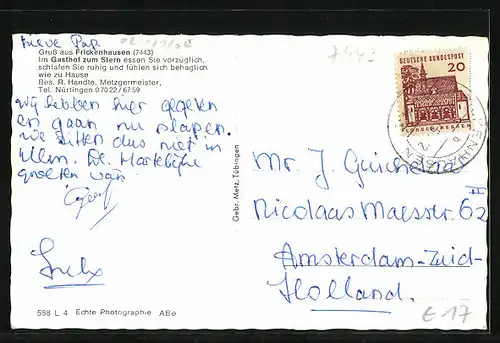 Lieve Pap
Gruß aus Frickenhausen (7443)
Im Gasthof zum Stern essen Sie vorzüglich,
schlafen Sie ruhig und fühlen sich behaglich
wie zu Hause
Bes. R. Handte, Metzgermeister,
Tel. Nürtingen 07022/6759
wij hebben hier gegeten
en gaan nu slapen.
we zitten dus niet in
Ulm. De Hartelijke
groeten van
Gebr. Metz, Tübingen
558 L 4 Echte Photographie ABe
7443
DEUTSCHE BUNDESPOST
20
LORSCH/HESSEN
Mr. J.
Nicolaas Maesstr. 62 II
Amsterdam-Zuid-
Holland.
E 17